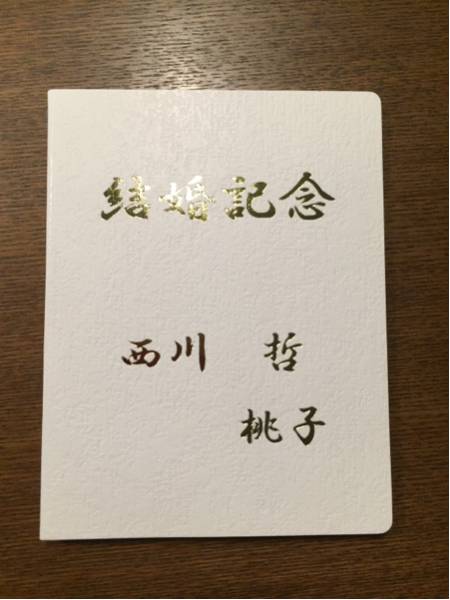 結婚記念
西川 哲
桃子